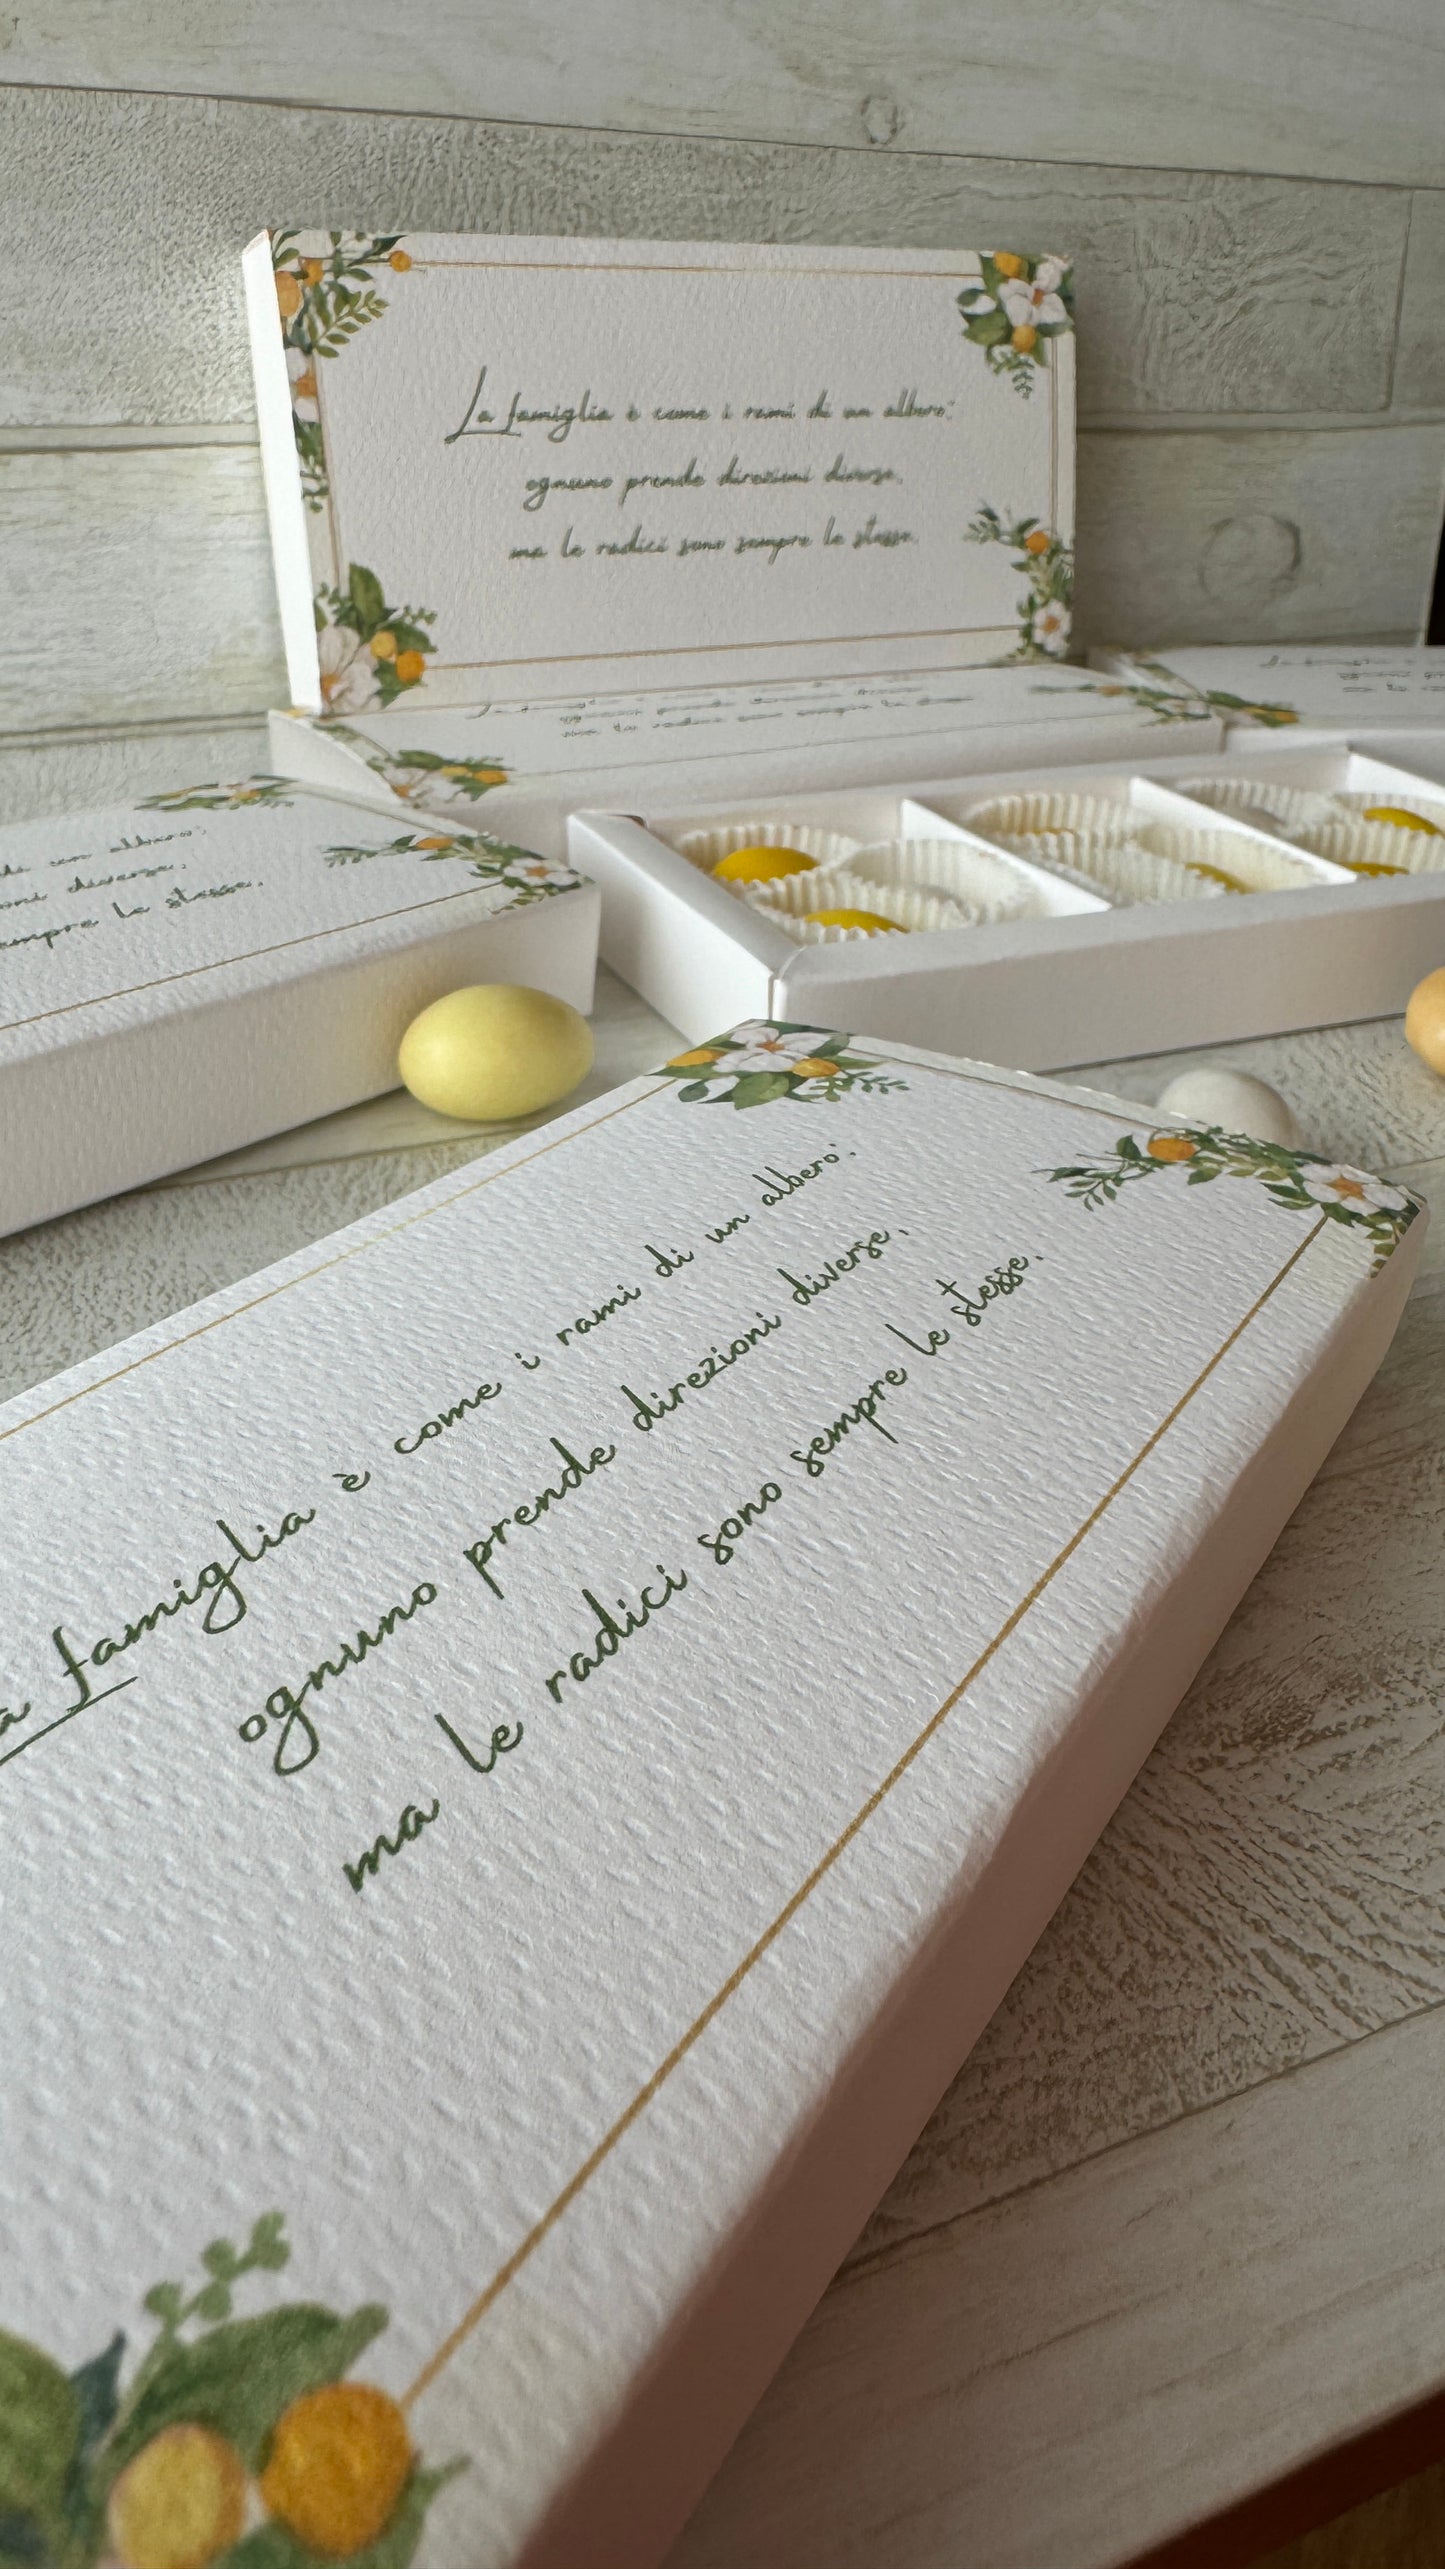 La famiglia è come i rami di un albero:
ognuno prende direzioni diverse,
ma le radici sono sempre le stesse.
La famiglia
ognuno prende
ma le radici sono sempre le
di un albero:
diverse,
sempre le stesse.
a famiglia è come i rami di un albero:
ognuno prende direzioni diverse,
ma le radici sono sempre le stesse.